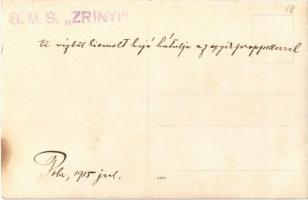 18
S. M. S. „ZRINYI"
A vizből kiemelt hajó hátulja az egyik propellerrel
Pola, 1915 jul.